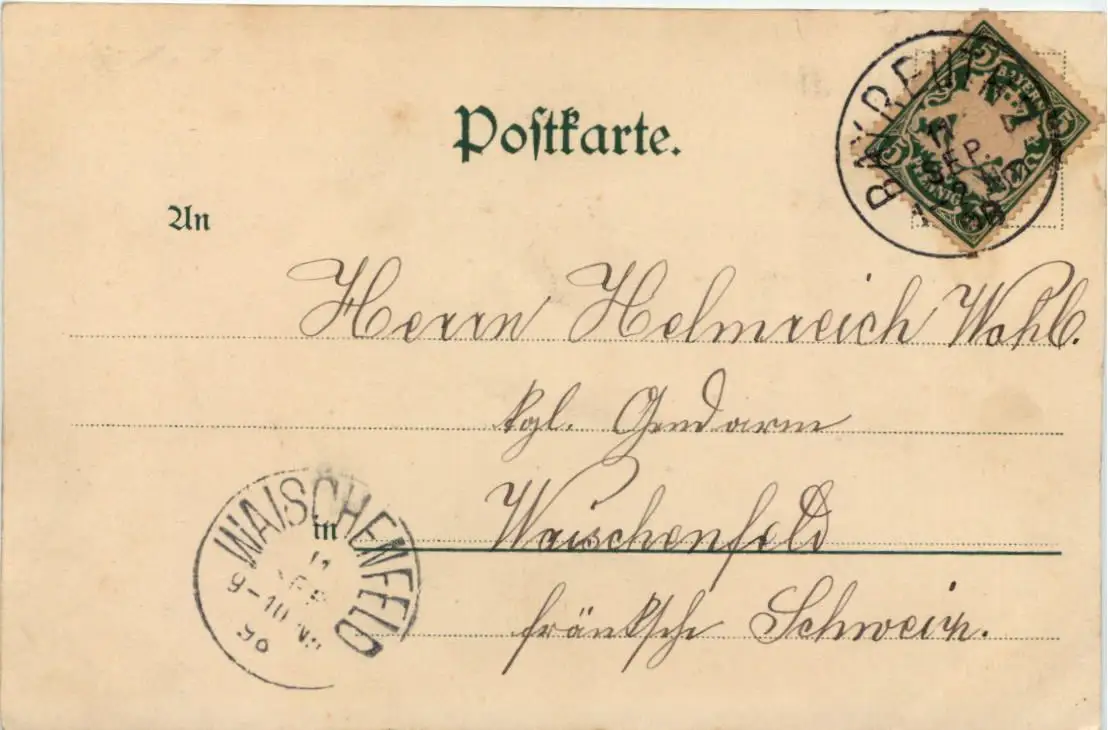 Postkarte.
An
Herrn Helmreich Wohl.
kgl. Gendarm
in Waischenfeld
fränksche Schweiz.
BAYREUTH 2
SEP.
98
5 BAYERN 5
5 PFENNIG
WAISCHENFELD
11
SEP
9-10 
98